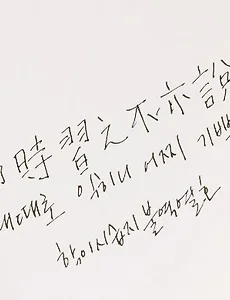 時習之不亦說
때때로 익히니 어찌 기쁘
학이시습지불역열호